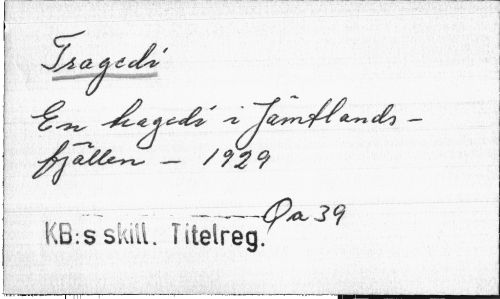 Tragedi
En tragedi i Jämtlands-
fjällen - 1929
Oa 39
KB:s skill. Titelreg.